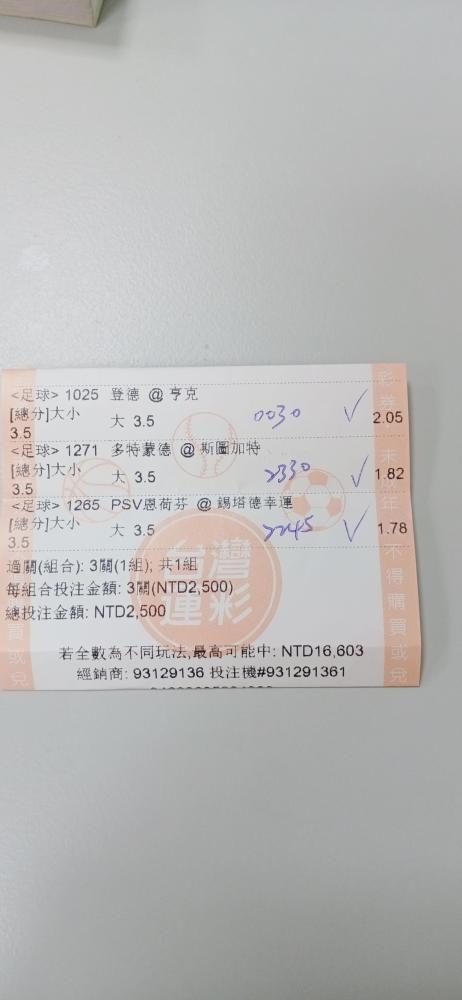 <足球> 1025 登德 @ 亨克
[總分]大小 大 3.5 0030 ✓ 2.05
3.5
<足球> 1271 多特蒙德 @ 斯圖加特
[總分]大小 大 3.5 2330 ✓ 1.82
3.5
<足球> 1265 PSV恩荷芬 @ 錫塔德幸運
[總分]大小 大 3.5 2245 ✓ 1.78
3.5
過關(組合): 3關(1組); 共1組
每組合投注金額: 3關(NTD2,500)
總投注金額: NTD2,500
若全數為不同玩法,最高可能中: NTD16,603
經銷商: 93129136 投注機#931291361
台灣
運彩
彩券
未
年
不得購買或兌
買或